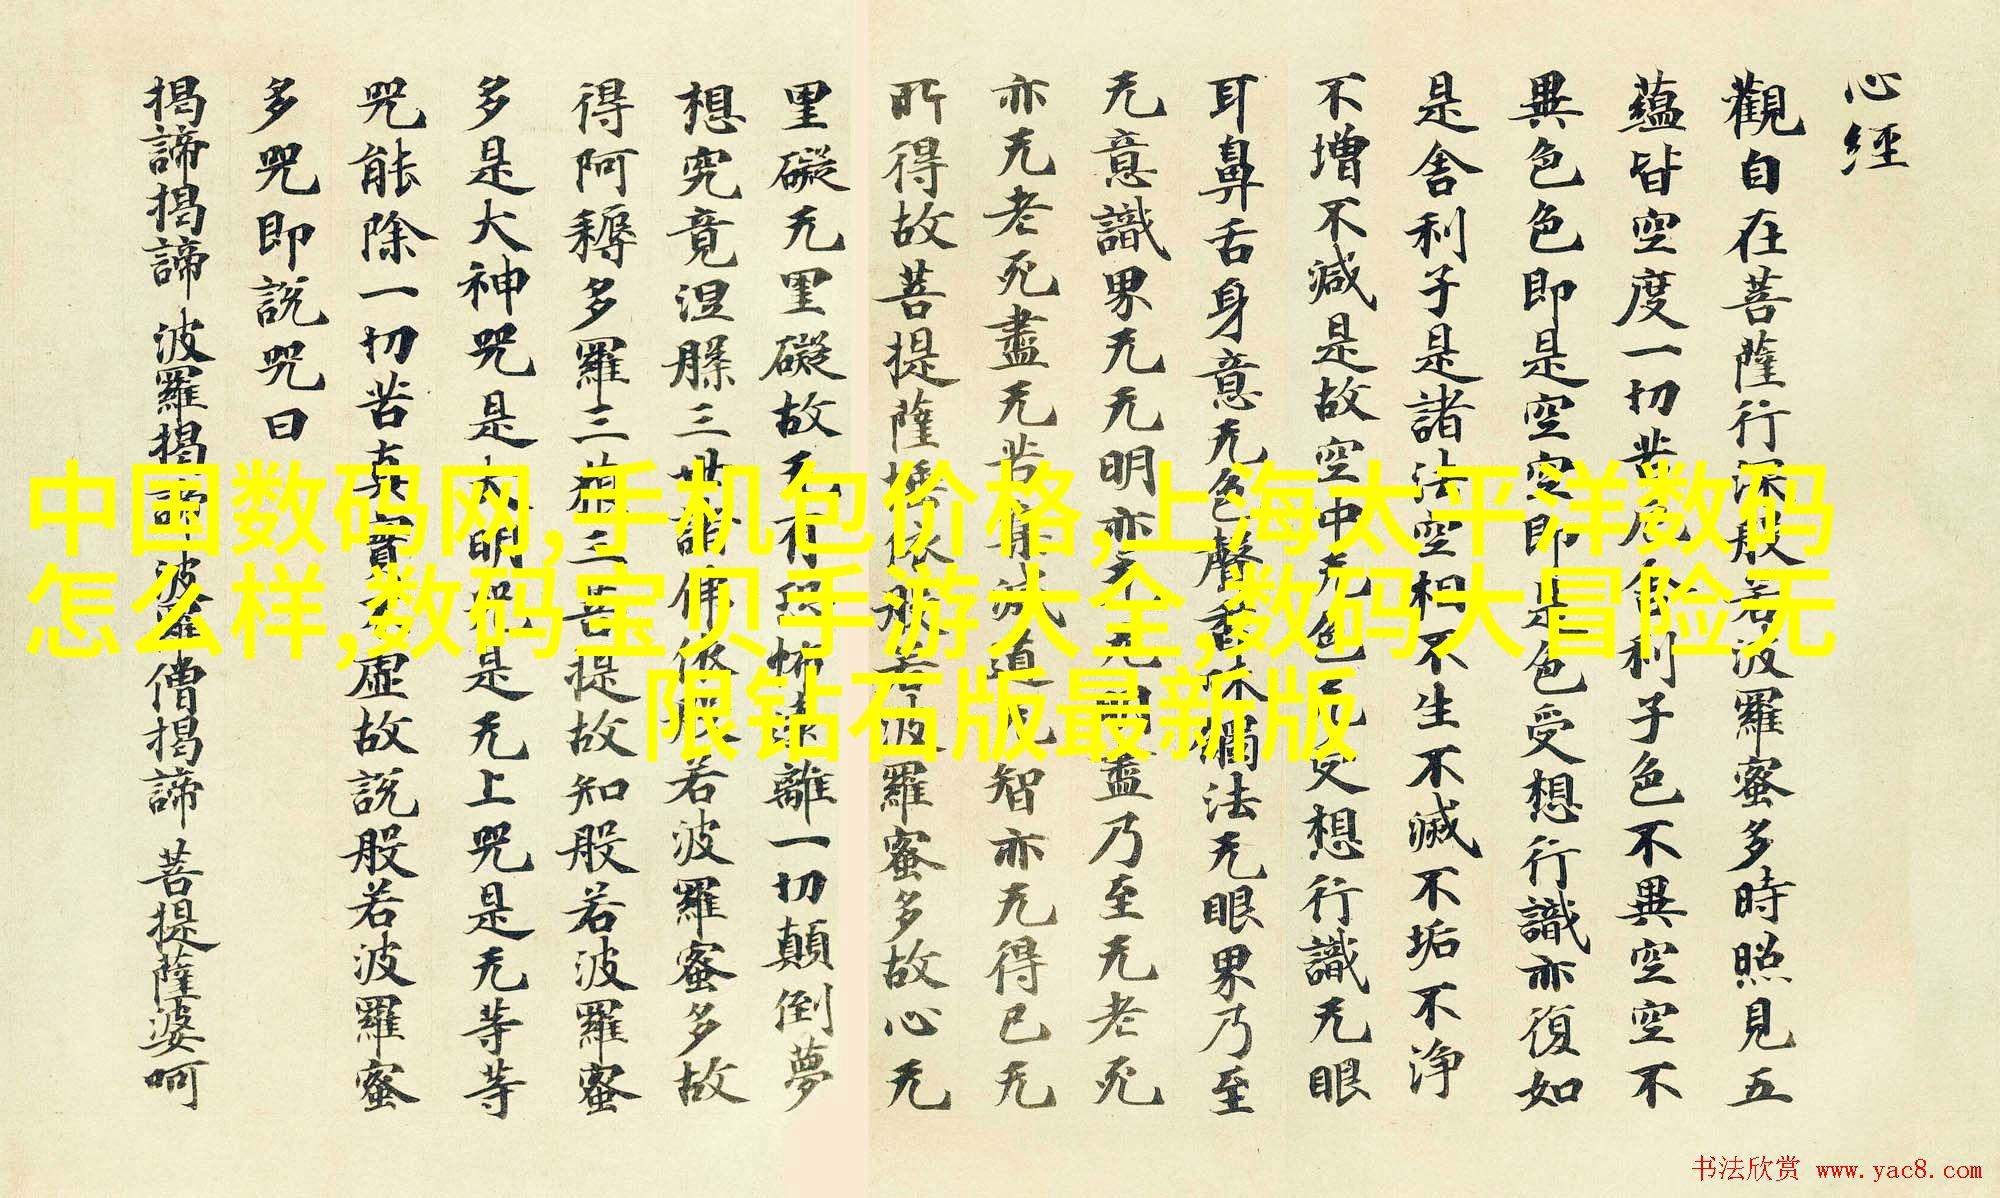 心經
觀自在菩薩行深般若波羅蜜多時照見五
蘊皆空度一切苦厄舍利子色不異空空不
異色色即是空空即是色受想行識亦復如
是舍利子是諸法空相不生不滅不垢不浄
不增不減是故空中无色无受想行識无眼
耳鼻舌身意无色聲香味觸法无眼界乃至
无意識界无无明亦无无明盡乃至无老死
亦无老死盡无苦集滅道无智亦无得已无
所得故菩提薩埵依般若波羅蜜多故心无
罣礙无罣礙故无有恐怖遠離一切顛倒夢
想究竟涅槃三世諸佛依般若波羅蜜多故
得阿耨多羅三藐三菩提故知般若波羅蜜
多是大神咒是大明咒是无上咒是无等等
咒能除一切苦真實不虛故說般若波羅蜜
多咒即說咒曰
揭諦揭諦 波羅揭諦 波羅僧揭諦 菩提薩婆呵
中国数码网,手机包价格,上海太平洋数码
怎么样,数码宝贝手游大全,数码大冒险无
限钻石版最新版
书法欣赏 www.yac8.com